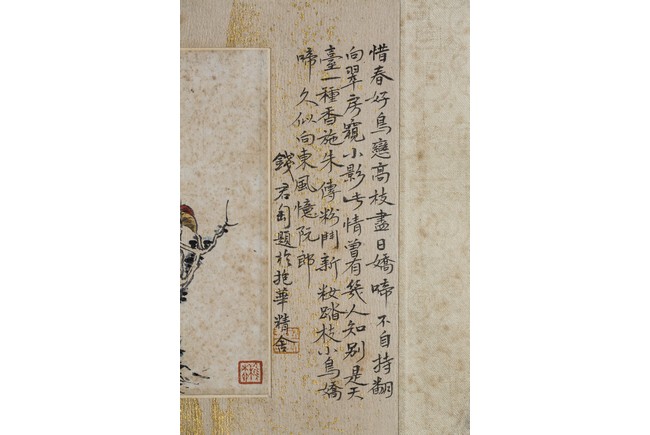 惜春好鳥戀高枝盡日嬌啼不自持翻
向翠房窺小影此情曾有幾人知別是天
臺一種香施朱傅粉鬥新妝踏枝小鳥嬌
啼久似向東風憶阮郎
錢君匋題於抱華精舍